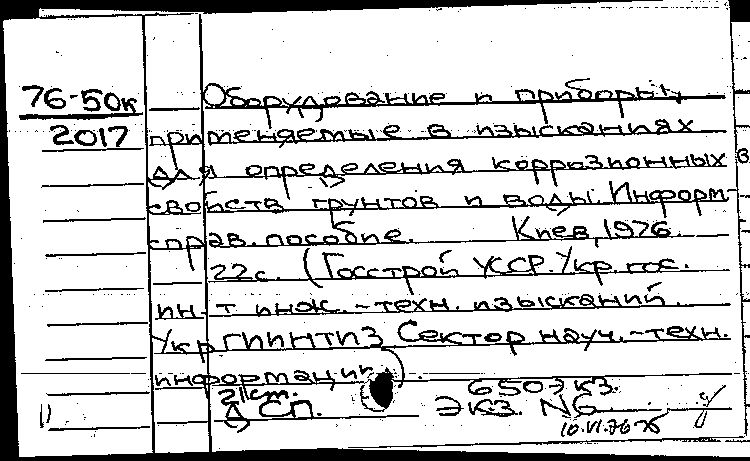 76-50к
2017
Оборудование и приборы,
применяемые в изысканиях
для определения коррозионных
свойств грунтов и воды. Информ.-
справ. пособие. Киев, 1976.
22с. (Госстрой УССР. Укр. гос.
ин-т инж.-техн. изысканий
УкрГИИНТИЗ Сектор науч.-техн.
информации).
21 см. 650 экз.
ДСП. Экз. №6
10.VI.76